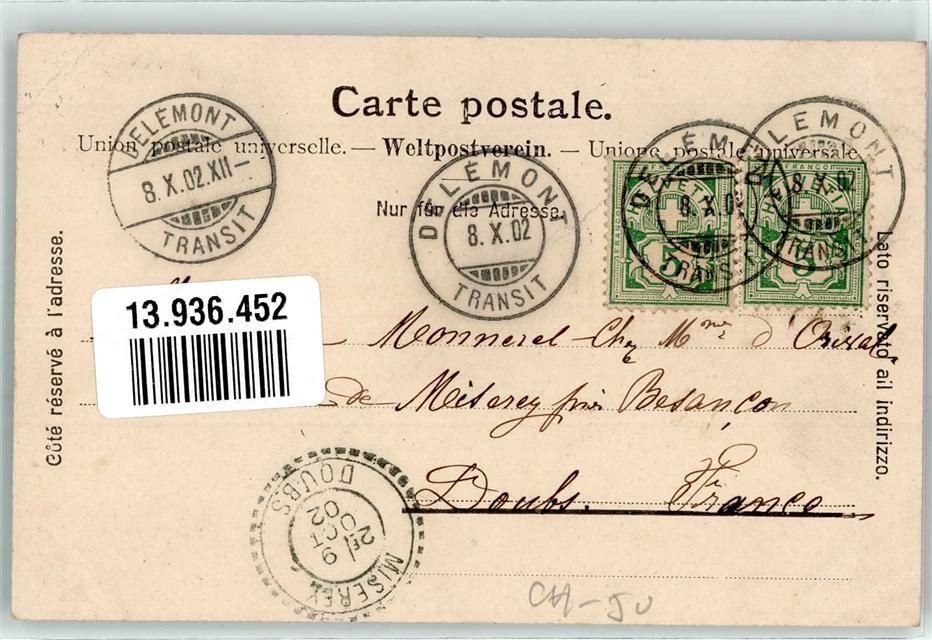 Carte postale.
Union postale universelle. — Weltpostverein. — Unione postale universale
Nur für die Adresse.
Côté réservé à l'adresse.
Lato riservato all indirizzo.
DELÉMONT
8.X.02.XII—
TRANSIT
DELÉMONT
8.X.02
TRANSIT
DELÉMONT
8.X.02
TRANSIT
DELÉMONT
TRANSIT
FRANCO
HELVETIA
5
FRANCO
HELVETIA
5
13.936.452
Monnerel Chez Mme d'
de Miserey près Besançon
Doubs. France
MISEREY
2E/9
OCT
02
DOUBS
CH-JU